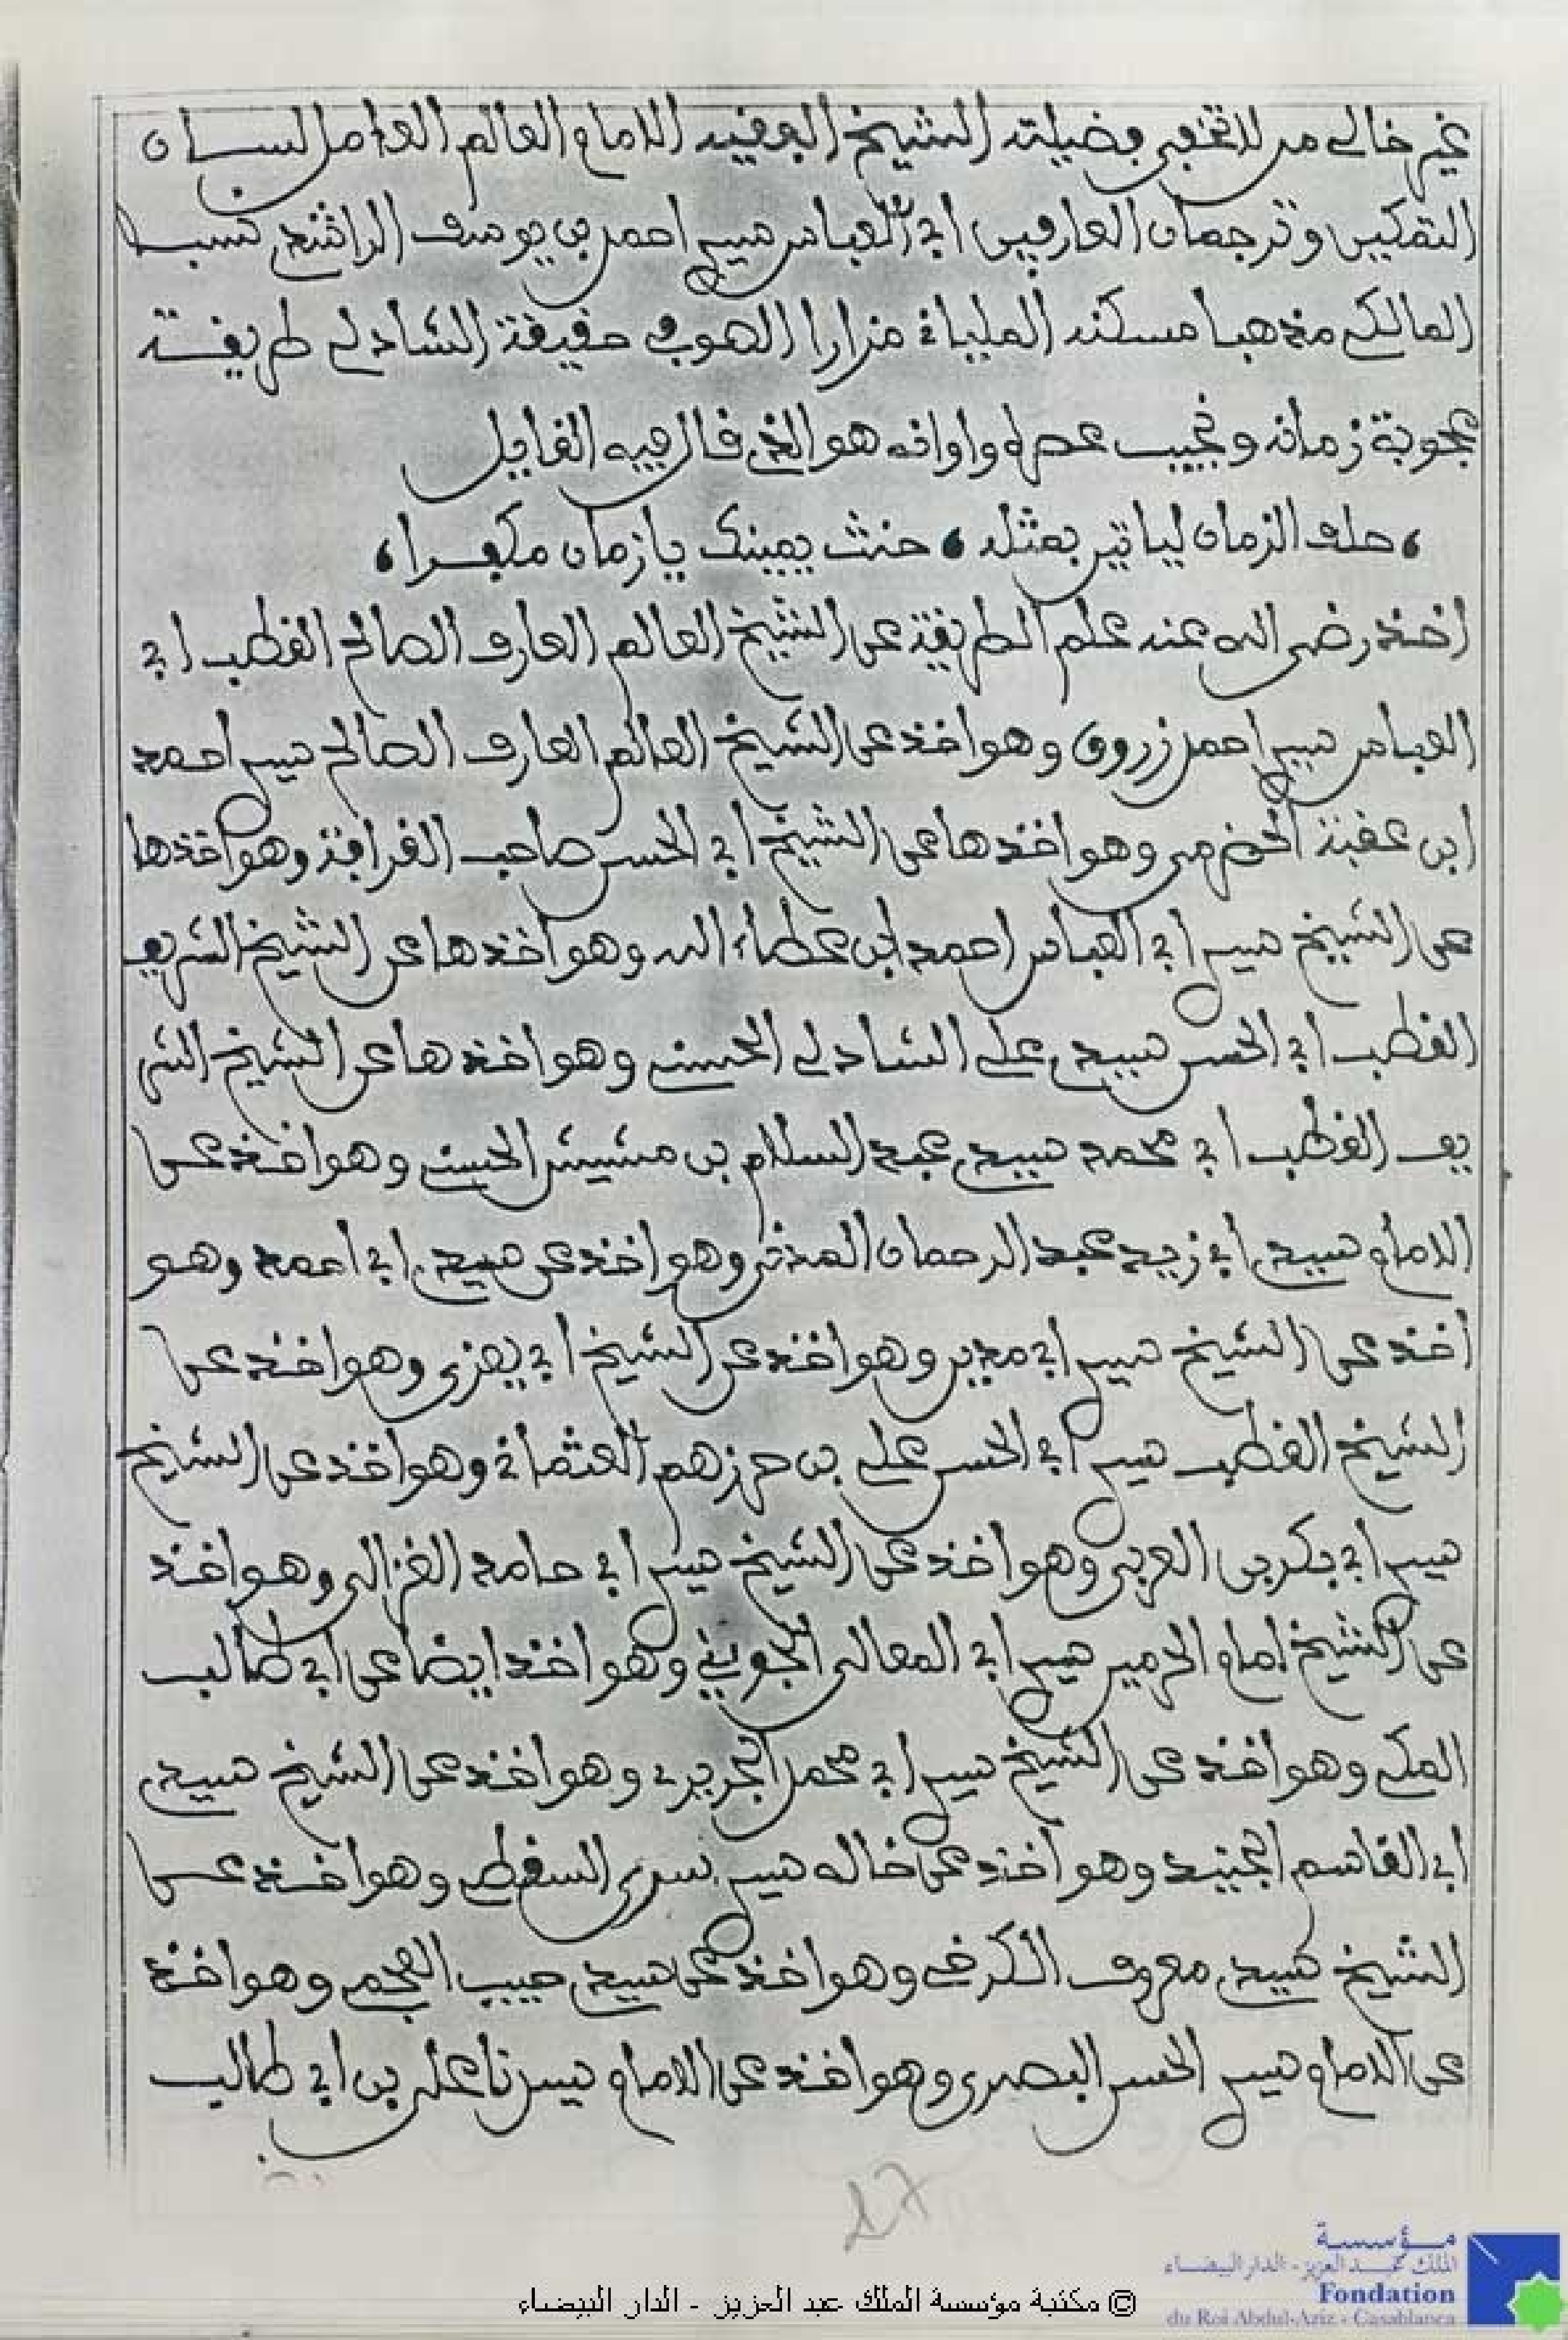 غير خالي من لا تخفى فضيلته الشيخ الفقيه الامام العالم العامل لسان
التمكين وترجمان العارفين ابي العباس سيدي احمد بن يوسف الراشدي نسبا
المالكي مذهبا مسكنه الملياني مزارا الصوفي حقيقة الشاذلي طريقة
عجوبة زمانه ونجيب عصره واوانه هو الذي قال فيه القايل
، حلف الزمان لياتين بمثله ، حنثت يمينك يا زمان فكفرا ،
اخذ رضي الله عنه علم الطريقة عن الشيخ العالم العارف الصالح القطب ابي
العباس سيدي احمد زروق وهو اخذ عن الشيخ العالم العارف الصالح سيدي احمد
ابن عقبة الحضرمي وهو اخذها عن الشيخ ابي الحسن صاحب القرافة وهو اخذها
عن الشيخ سيدي ابي العباس احمد ابن عطاء الله وهو اخذها عن الشيخ الشريف
القطب ابي الحسن سيدي علي الشاذلي الحسني وهو اخذها عن الشيخ الشر
يف القطب ابي محمد سيدي عبد السلام بن مشيش الحسني وهو اخذ عن
الامام سيدي ابي زيد عبد الرحمان المدني وهو اخذ عن سيدي ابي احمد وهو
اخذ عن الشيخ سيدي ابي مدين وهو اخذ عن الشيخ ابي يعزى وهو اخذ عن
الشيخ القطب سيدي ابي الحسن علي بن حرزهم العثماني وهو اخذ عن الشيخ
سيدي ابي بكر بن العربي وهو اخذ عن الشيخ سيدي ابي حامد الغزالي وهو اخذ
عن الشيخ امام الحرمين سيدي ابي المعالي الجويني وهو اخذ ايضا عن ابي طالب
المكي وهو اخذ عن الشيخ سيدي ابي محمد الجريري وهو اخذ عن الشيخ سيدي
ابي القاسم الجنيد وهو اخذ عن خاله سيدي سري السقطي وهو اخذ عن
الشيخ سيدي معروف الكرخي وهو اخذ عن سيدي حبيب العجمي وهو اخذ
عن الامام سيدي الحسن البصري وهو اخذ عن الامام سيدنا علي بن ابي طالب
27
مؤسسة
الملك عبد العزيز - الدار البيضاء
Fondation
du Roi Abdul-Aziz - Casablanca
© مكتبة مؤسسة الملك عبد العزيز - الدار البيضاء